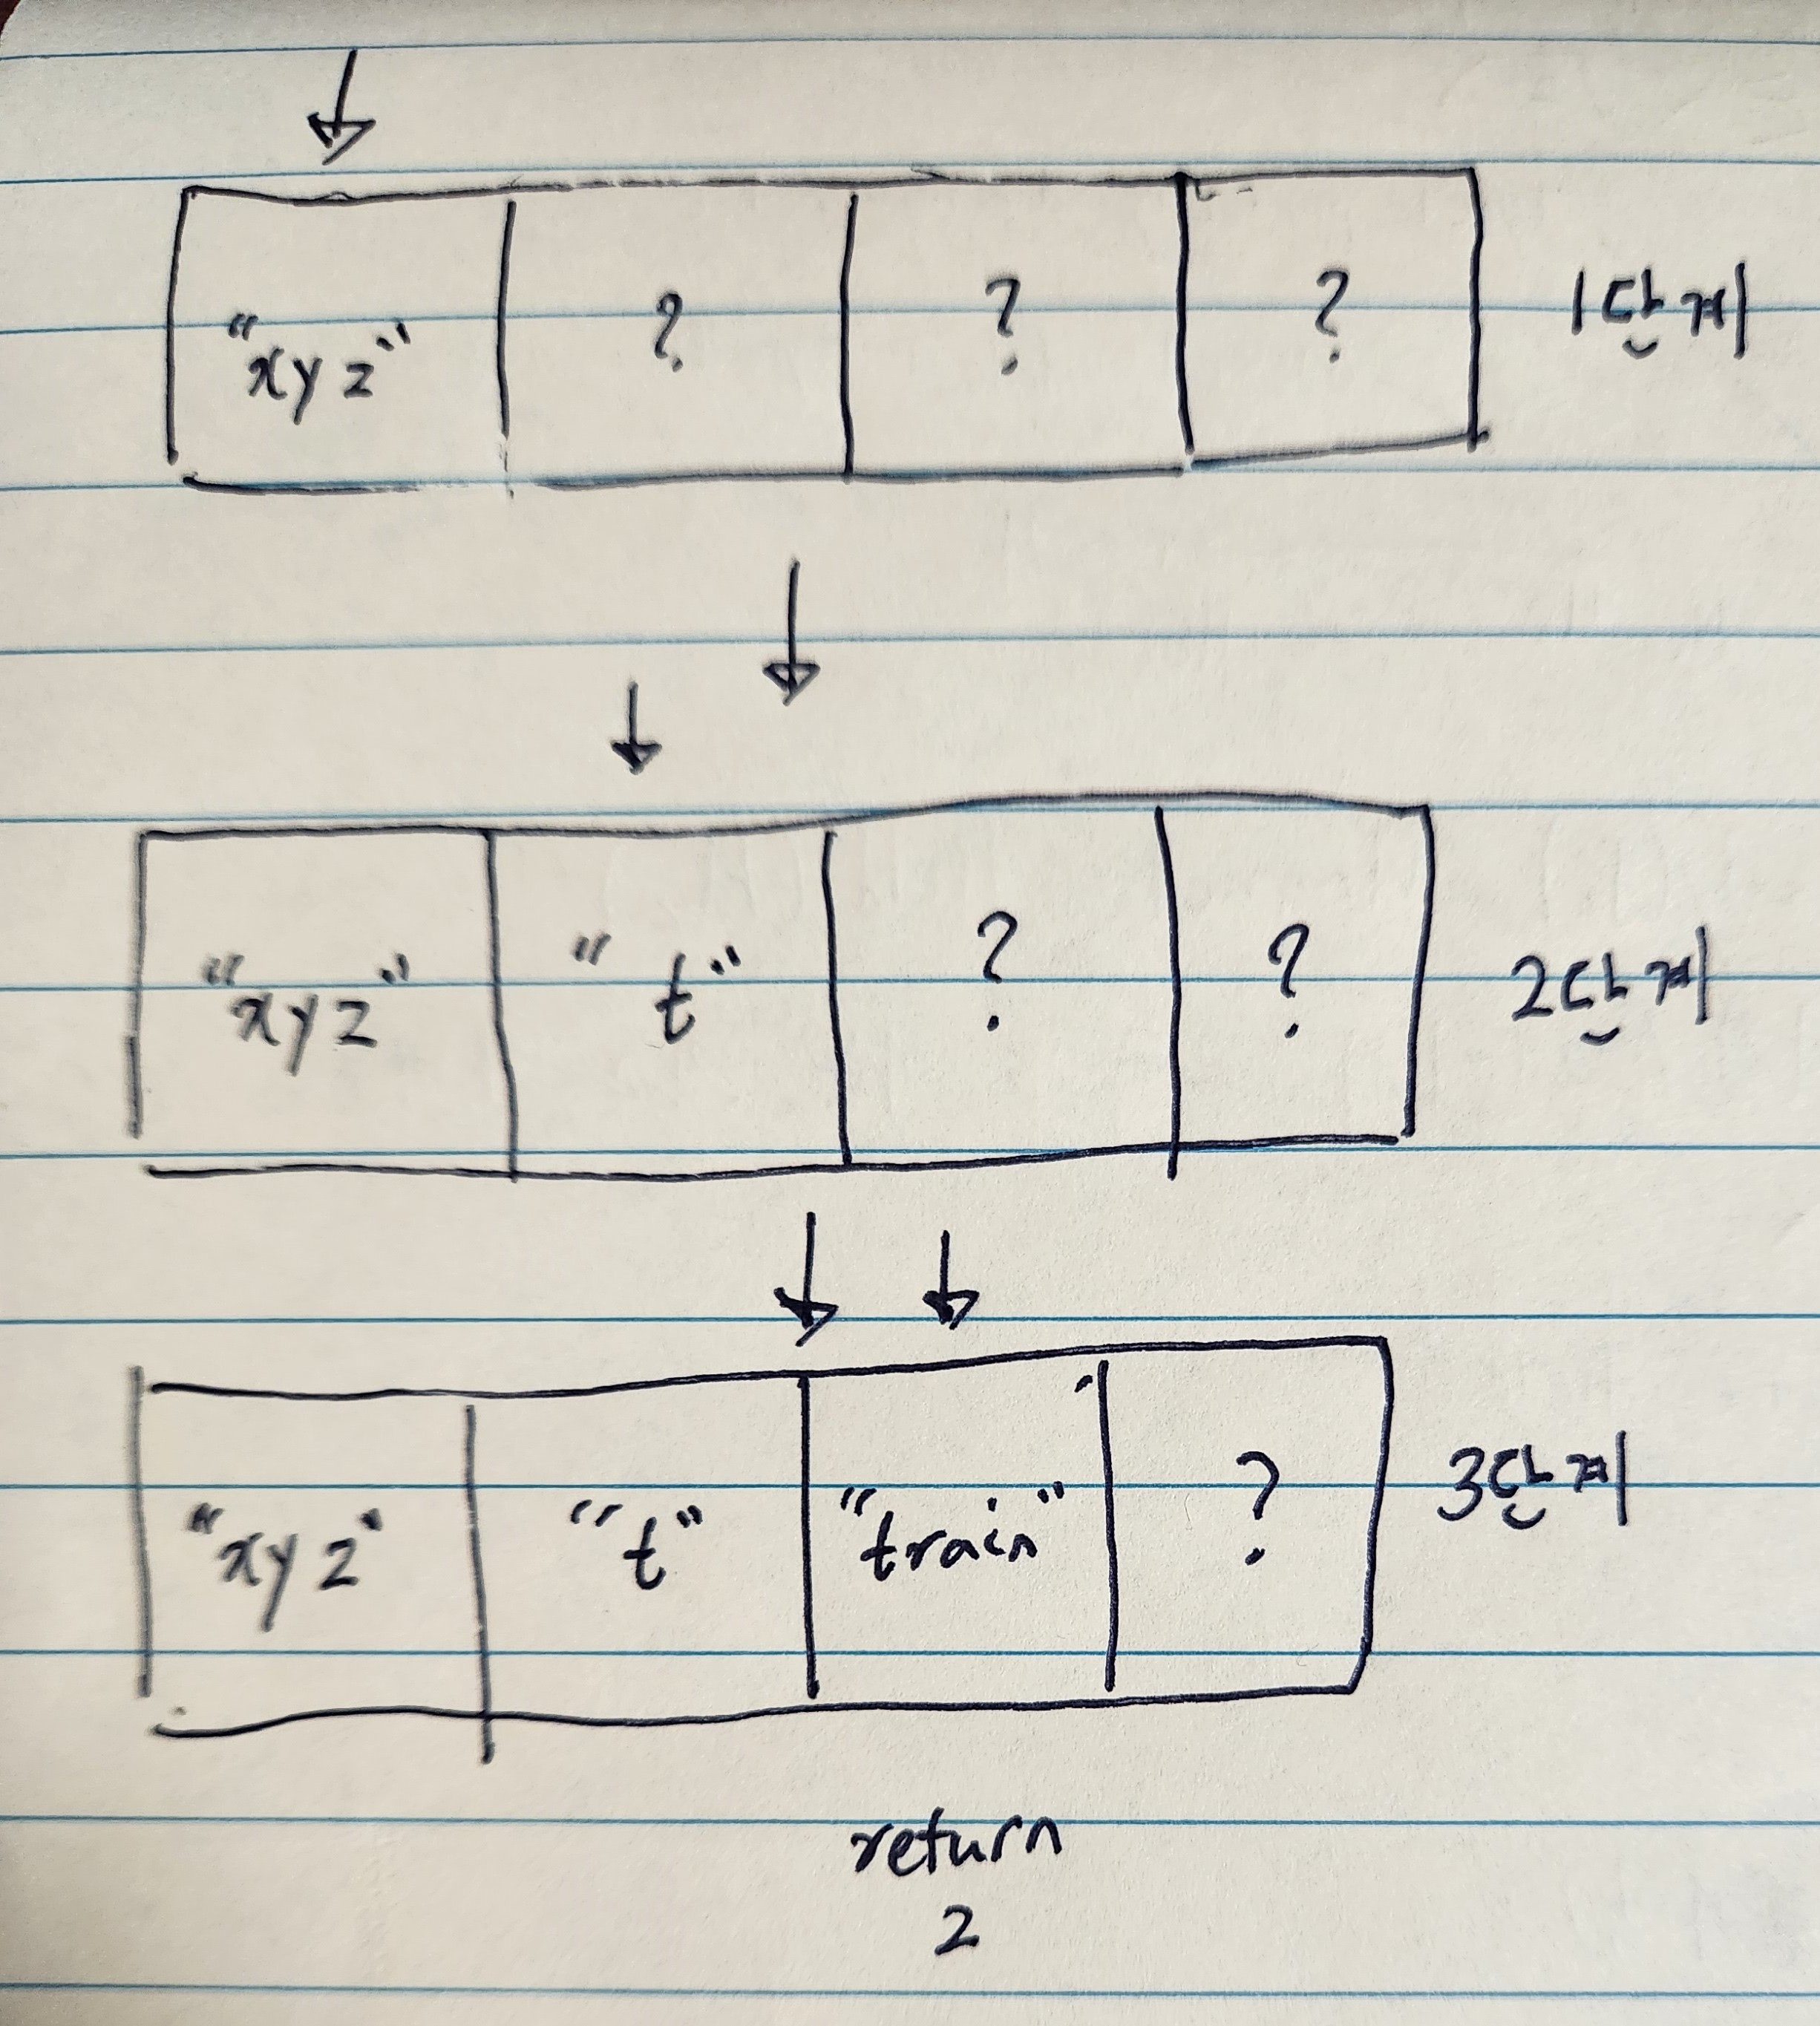 "xyz" ? ? ? 1단계
"xyz" "t" ? ? 2단계
"xyz" "t" "train" ? 3단계
return
2